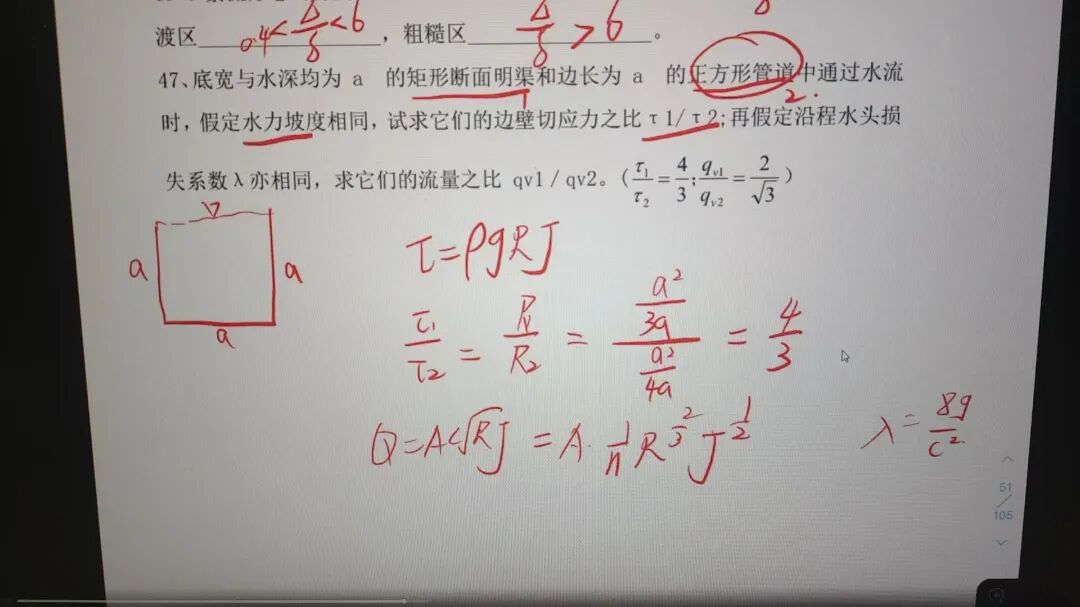 渡区 0.4<Δ/δ<6 ，粗糙区 Δ/δ>6 。
47、底宽与水深均为 a 的矩形断面明渠和边长为 a 的正方形管道中通过水流
2.
时，假定水力坡度相同，试求它们的边壁切应力之比 τ1/τ2；再假定沿程水头损
失系数λ亦相同，求它们的流量之比 qv1／qv2。（τ1/τ2=4/3;qv1/qv2=2/√3）
a a
a
τ=ρgRJ
τ1/τ2=R1/R2=(a²/3a)/(a²/4a)=4/3
Q=AC√RJ=A·1/n R^2/3 J^1/2 λ=8g/c²
51
/
105